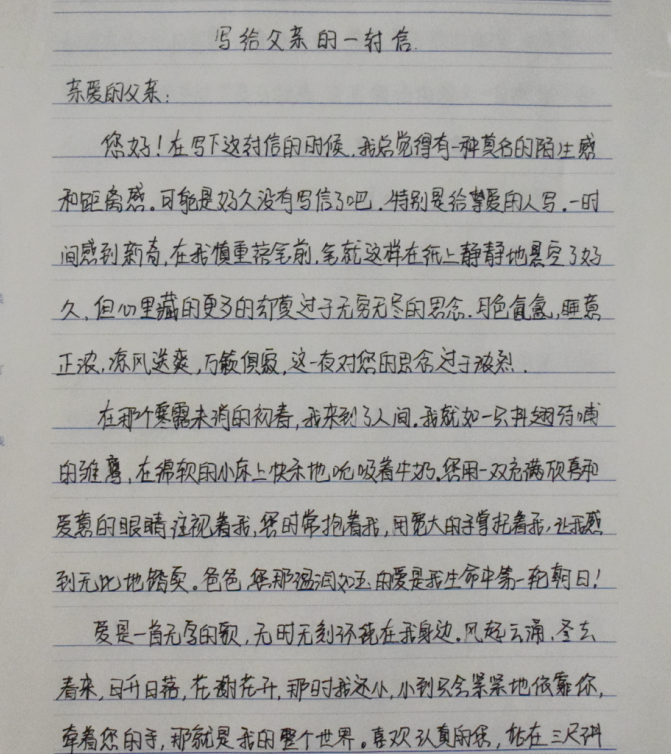 写给父亲的一封信.
亲爱的父亲:
您好!在写下这封信的时候,我总觉得有一种莫名的陌生感
和距离感。可能是好久没有写信了吧,特别是给挚爱的人写.一时
间感到新奇,在我慎重落笔前,笔就这样在纸上静静地悬空了好
久,但心里藏的更多的却莫过于无穷无尽的思念.月色氤氲,睡意
正浓,凉风送爽,万籁俱寂,这一夜对您的思念过于浓烈.
在那个寒露未消的初春,我来到了人间.我就如一只抖翅待哺
的雏鹰,在绵软的小床上快乐地吮吸着牛奶.您用一双充满欣喜和
爱意的眼睛注视着我,您时常抱着我,用宽大的手掌托着我,让我感
到无比地踏实。爸爸,您那温润如玉的爱是我生命中第一轮朝日!
爱是一首无字的歌,无时无刻环绕在我身边.风起云涌,冬去
春来,日升日落,花谢花开,那时我还小,小到只会紧紧地依靠你,
牵着您的手,那就是我的整个世界。喜欢认真的您,站在三尺讲